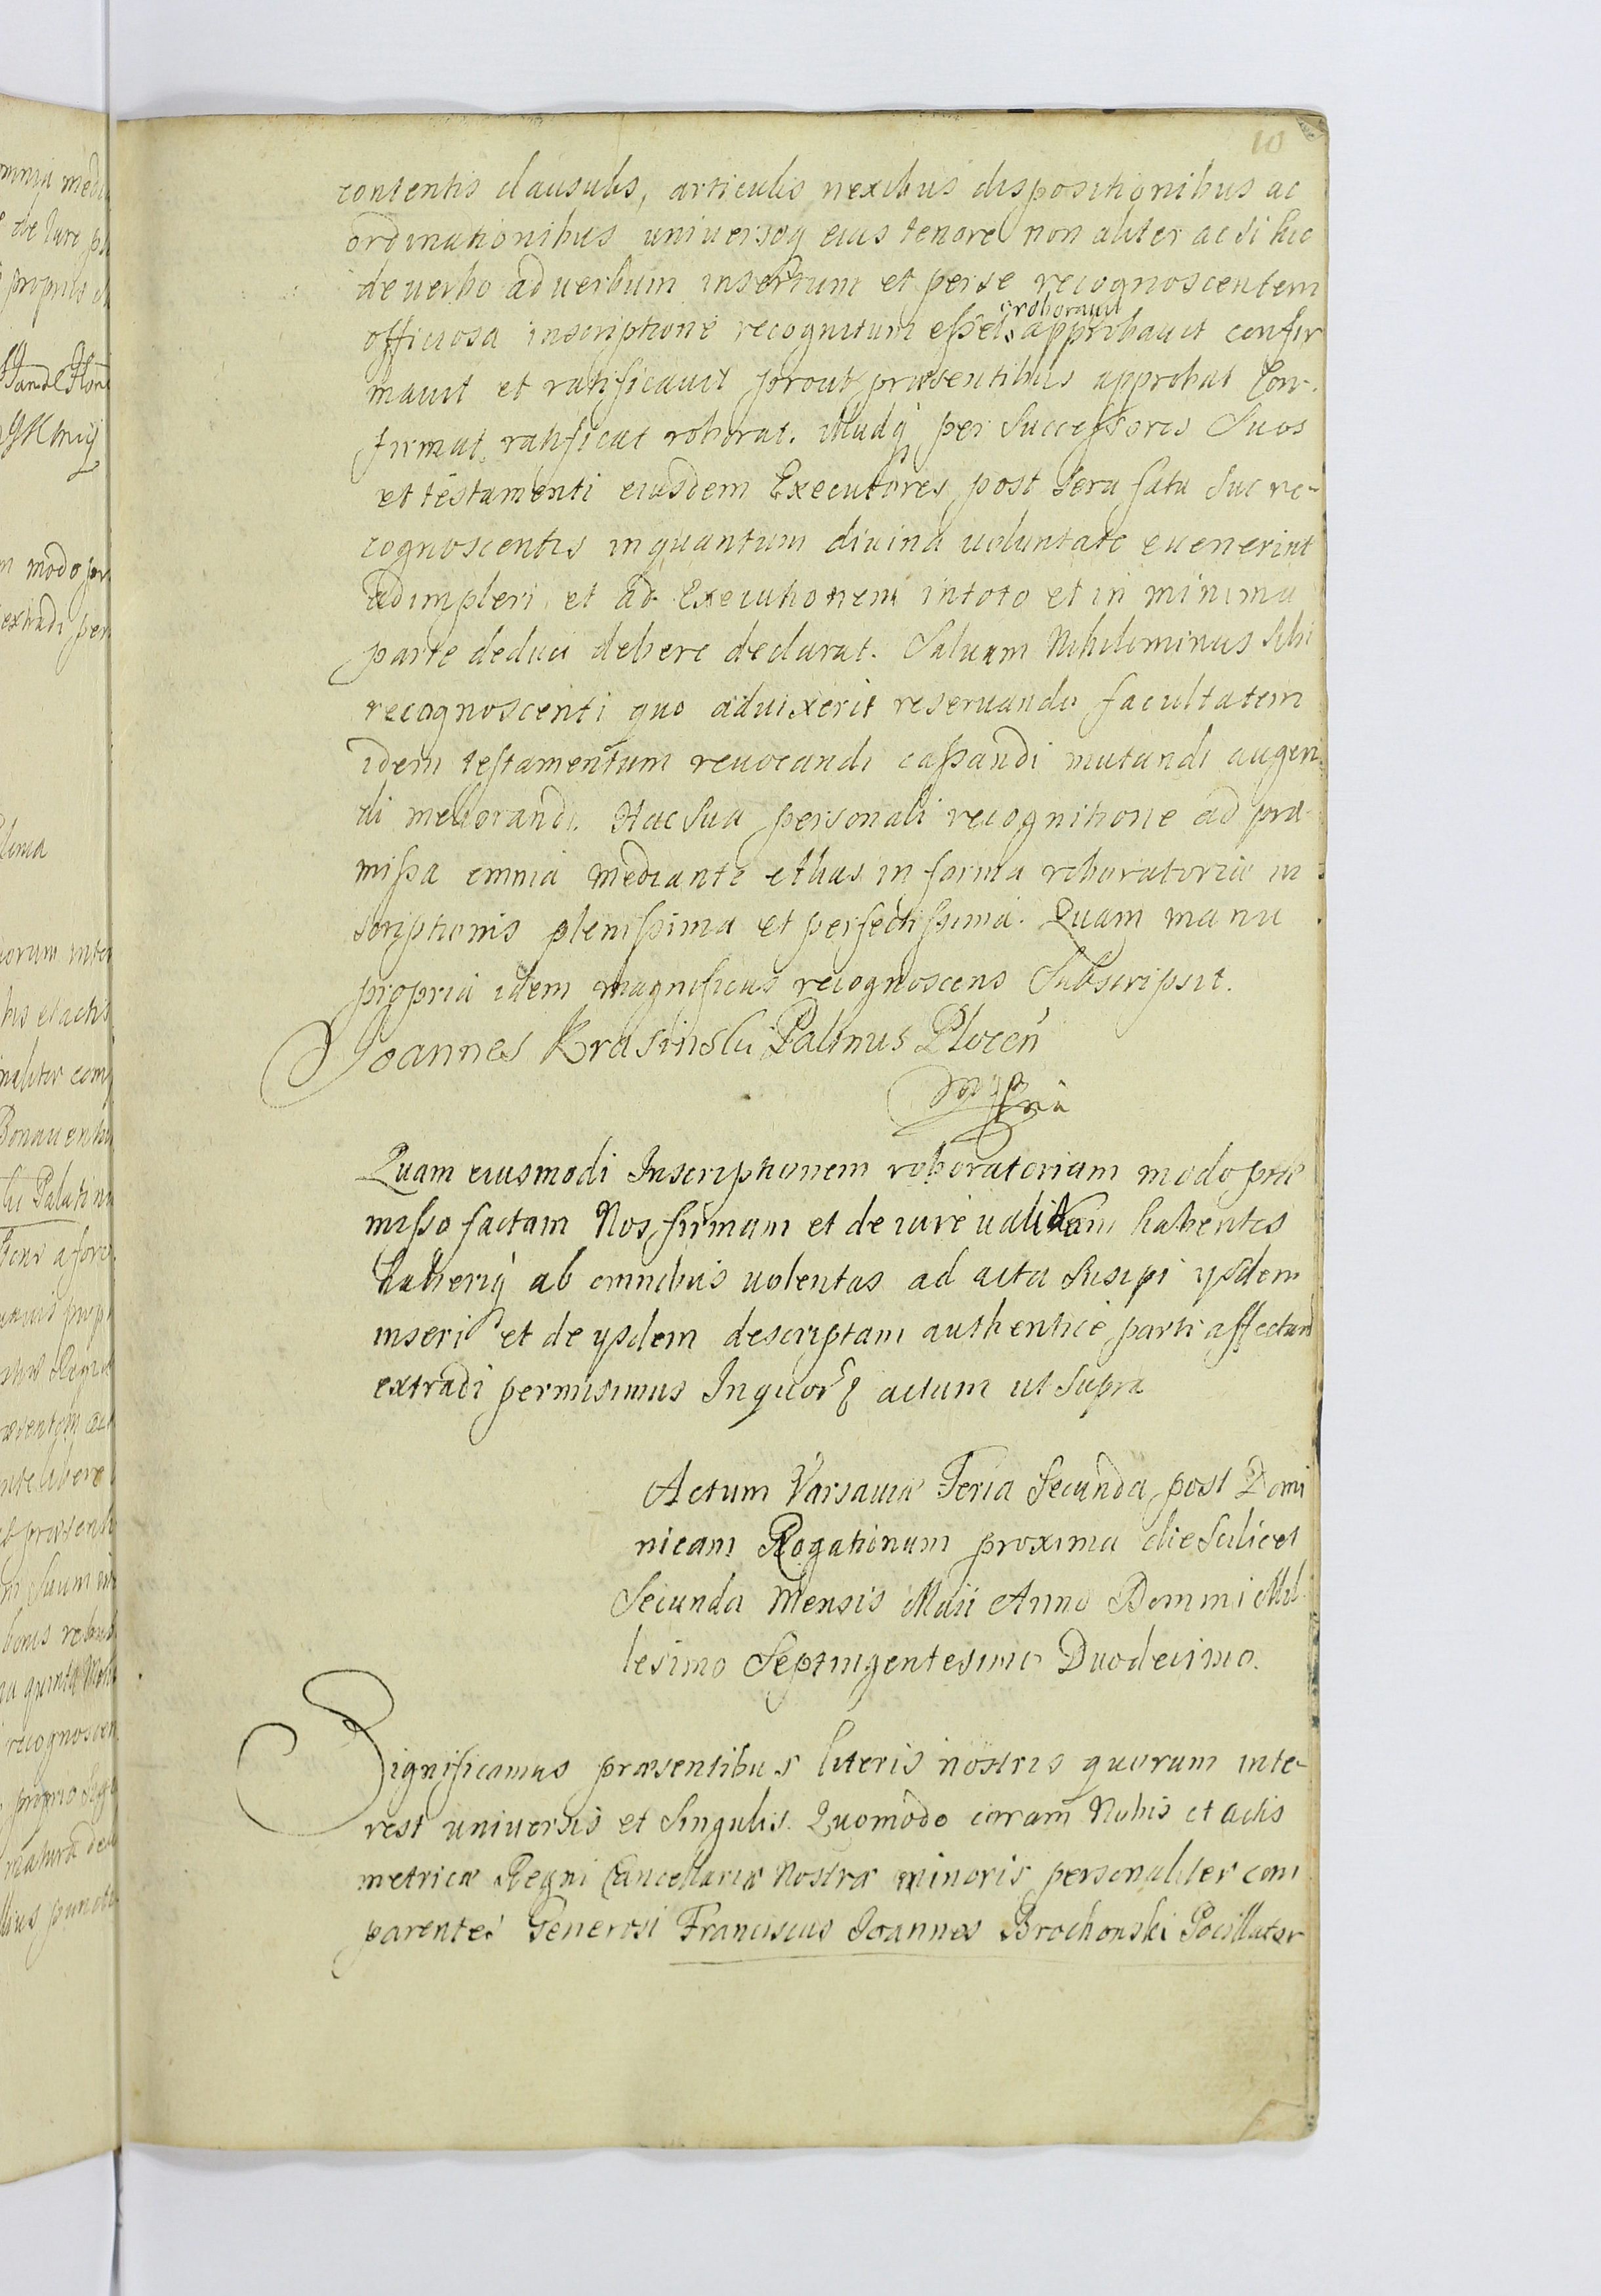 10
contentis clausulis, articulis nexibus dispositionibus ac
ordinationibus uniuersoq eius tenore non aliter ac si hic
de uerbo ad uerbum insertum et per se recognoscentem
officiosa inscriptione recognitum esset roborauit approbauit confir
mauit et ratificauit prout præsentibus approbat Con-
firmat, ratificat roborat. Illudq per Successores Suos
et testamenti eiusdem Executores post sera fata Sui re-
cognoscentis inquantum diuina uoluntate euenerint
adimpleri et ad Executionem in toto et in minima
parte deduci debere declarat. Saluam Nihilominus Sibi
recognoscenti quo aduixerit reseruando facultatem
idem testamentum reuocandi cassandi mutandi augen
di meliorandi. Hac Sua personali recognitione ad præ-
missa omnia mediante et huius in forma roboratoriæ in-
scriptionis plenissima et perfectissima. Quam manu
propria idem magnificus recognoscens Subscripsit.
Joannes Krasinski Palinus Plocen
mppria
Quam eiusmodi Inscriptionem roboratoriam modo præ
misso factam Nos firmam et de iure ualidam habentes
haberiq ab omnibus uolentes ad acta Suscipi ysdem
inseri et de ysdem descriptam authentice parti affectan
extradi permisimus In quor actum ut Supra
Actum Varsauiæ Feria Secunda post Domi
nicam Rogationum proxima die Scilicet
Secunda Mensis Maii Anno Domini Mil-
lesimo Septingentesimo Duodecimo.
Significamus præsentibus literis nostris quorum inte-
rest uniuersis et Singulis. Quomodo coram Nobis et actis
metricæ Regni Cancellariæ Nostræ minoris personaliter com
parentes Generosi Franciscus Joannes Brochonski Pocillator